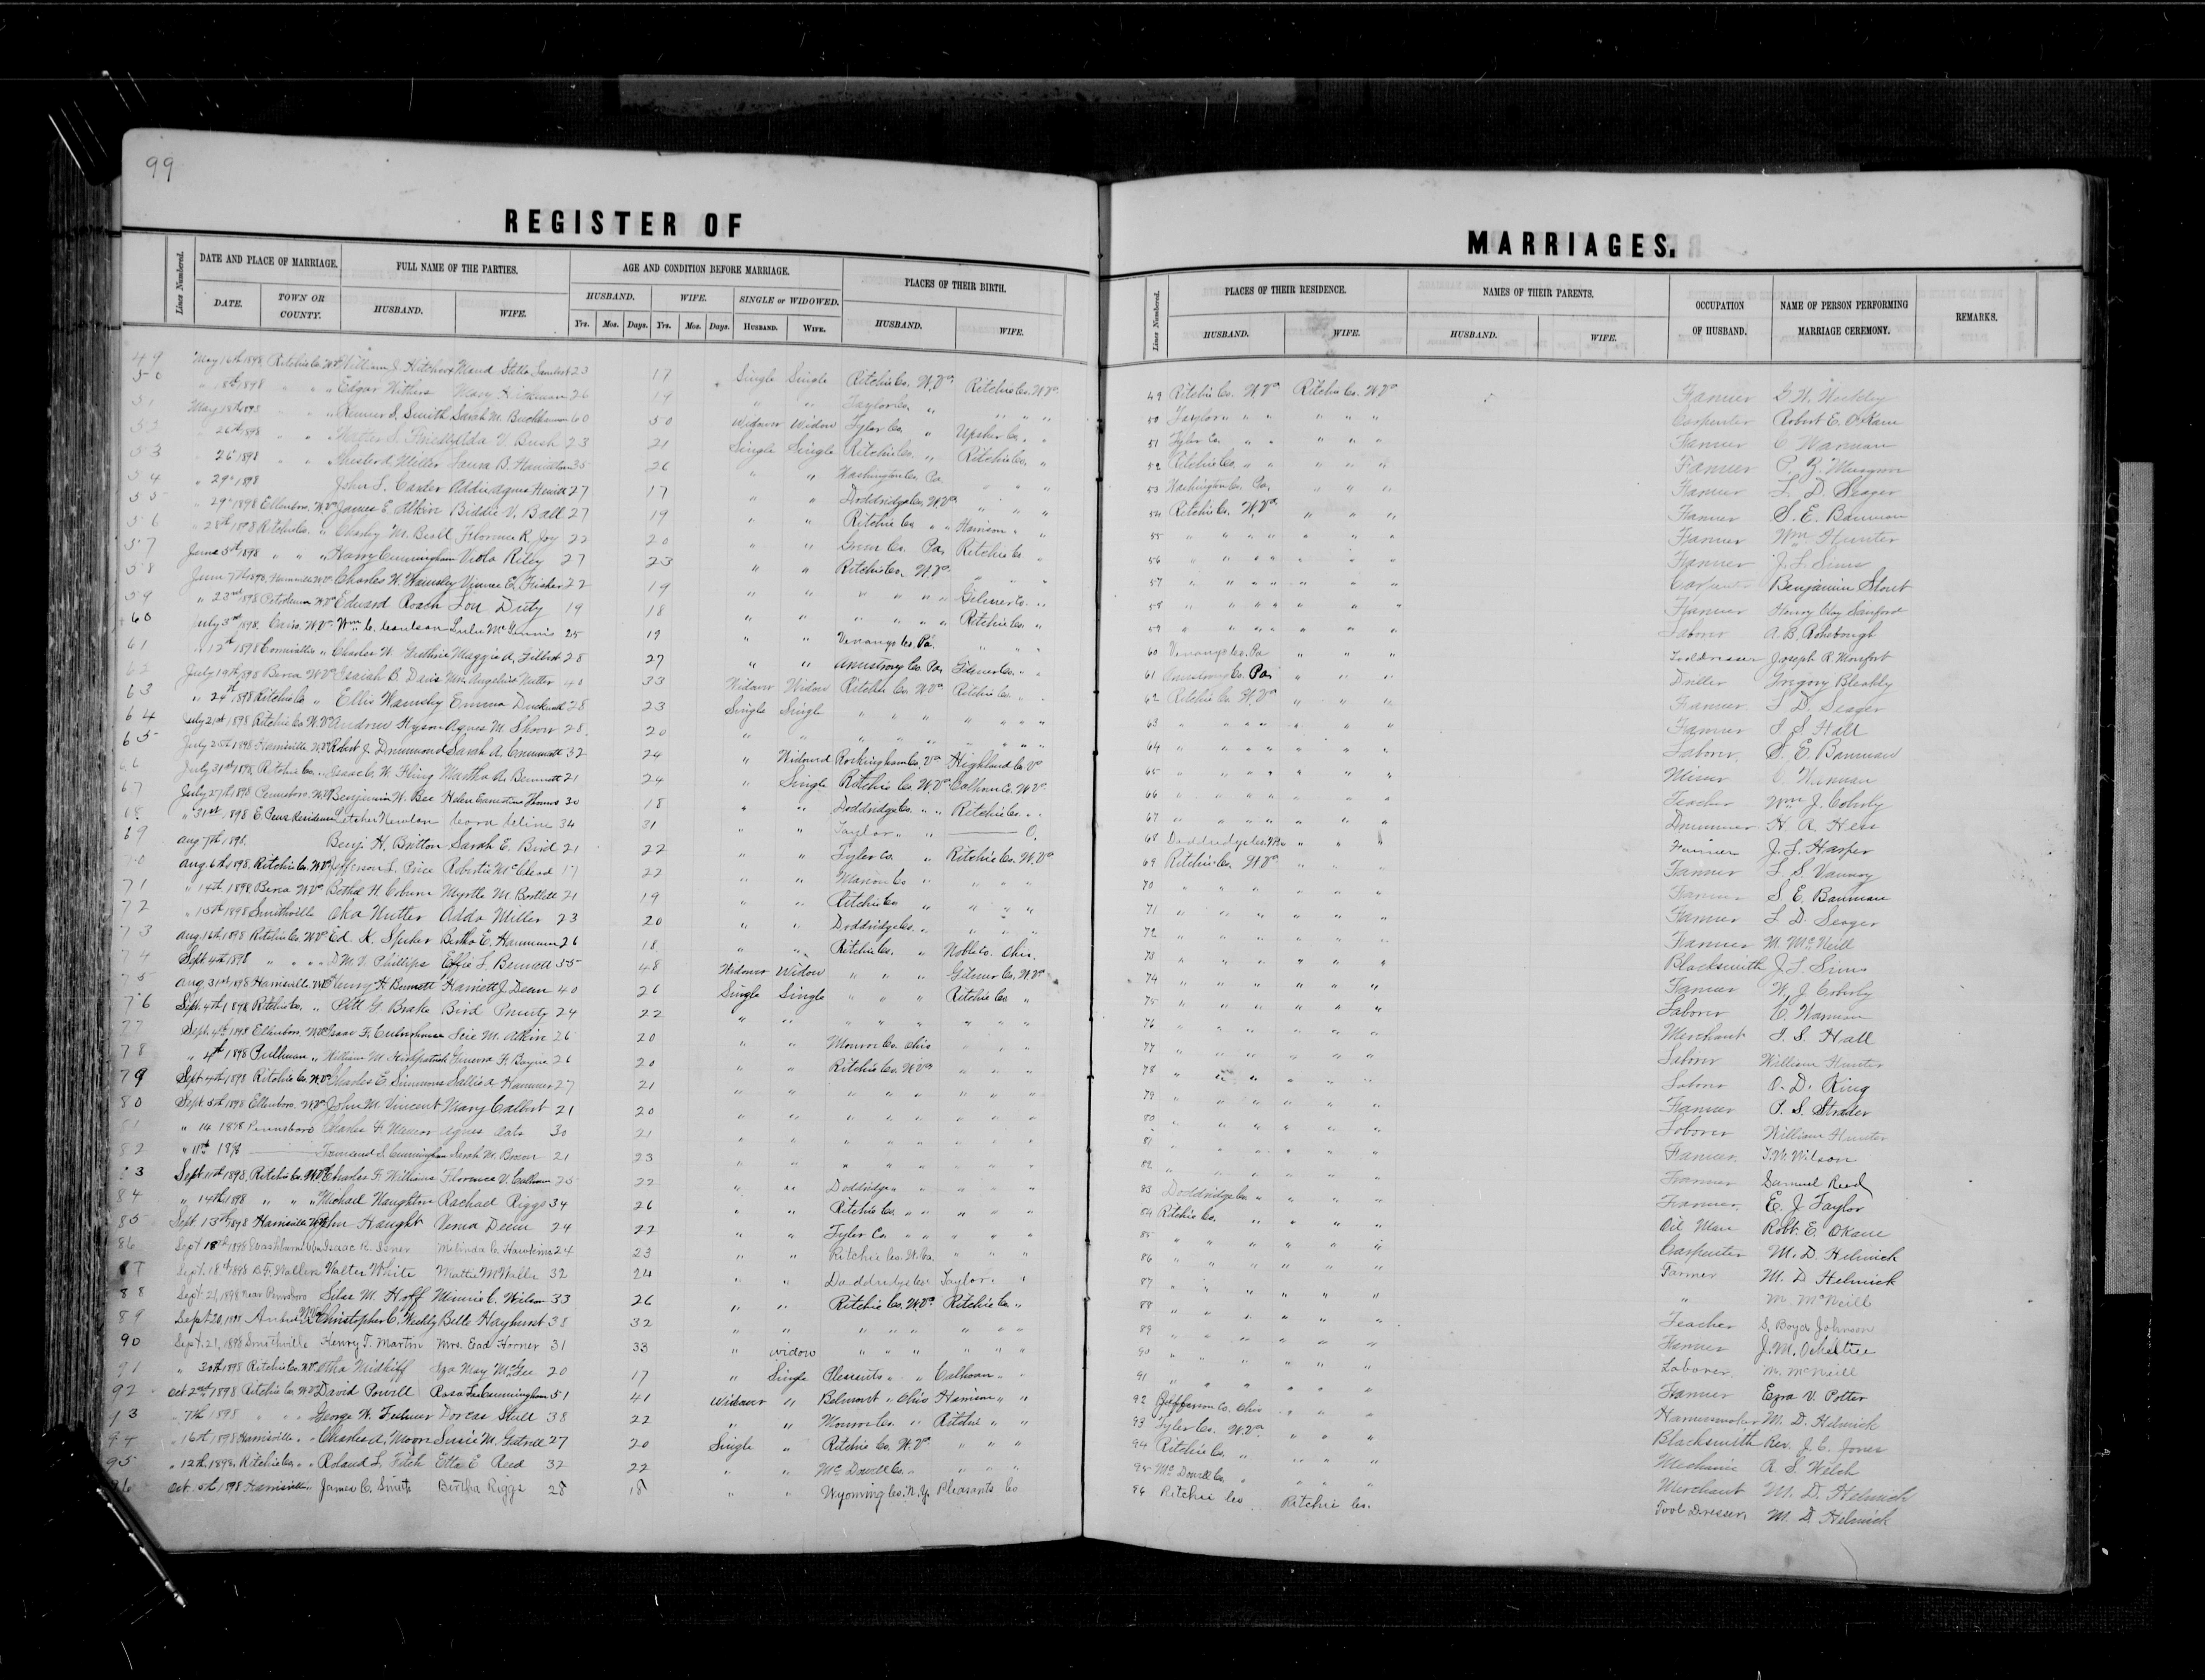 99
REGISTER OF
MARRIAGES.
Lines Numbered.
DATE AND PLACE OF MARRIAGE.
FULL NAME OF THE PARTIES.
AGE AND CONDITION BEFORE MARRIAGE.
PLACES OF THEIR BIRTH.
DATE.
TOWN OR COUNTY.
HUSBAND.
WIFE.
HUSBAND.
WIFE.
SINGLE or WIDOWED.
HUSBAND.
WIFE.
Yrs. Mos. Days. Yrs. Mos. Days. HUSBAND. WIFE.
Lines Numbered.
PLACES OF THEIR RESIDENCE.
NAMES OF THEIR PARENTS.
OCCUPATION OF HUSBAND.
NAME OF PERSON PERFORMING MARRIAGE CEREMONY.
REMARKS.
HUSBAND. WIFE. HUSBAND. WIFE.
49 May 16th 1898 Ritchie Co. W Va William J. Maud Stella 23 17 Single Single Ritchie Co. W. Va. Ritchie Co. W. Va.
50 " 8th 1898 " " " Edgar Withers Mary 26 19 " " Taylor Co. " " " "
51 May 18th 1898 " " Smith Sarah M. 60 50 Widower Widow Tyler Co. " Upshur Co. " "
52 " 26th 1898 " " V. Bush 23 21 Single Single Ritchie Co. " Ritchie Co. "
53 " 26 1898 " " Miller Laura B. Hamilton 35 26 " " Washington Co. Pa. " " "
54 " 29" 1898 John S. Carder Addie Agnes 27 17 " " Doddridge Co. W. Va. " " "
55 " 29" 1898 Ellenboro, W. Va James E. Alkin Biddie V. Ball 27 19 " " Ritchie Co. " " Harrison " "
56 " 28th 1898 Ritchie Co. " Charley M. Florence R. Joy 22 20 " " Green Co. Pa. Ritchie Co. "
57 June 5th 1898 " " " Harry Cunningham Viola Riley 27 23 " " Ritchie Co. W. Va. " " "
58 June 7th 1898, Harrisville W Va Charles W. Wamsley E. 22 19 " " " " " Gilmer Co. "
59 " 23rd 1898 Petroleum W Va Edward Roach Lou Duty 19 18 " " " " " " Ritchie Co. "
60 July 3rd 1898. Cairo. W. Va. Wm. C. Lulu McGinnis 25 19 " " Venango Co. Pa. " " "
61 " 12th 1898 Cornwallis " Charles W. Guthrie Maggie A. Gilbert 28 27 " " Armstrong Co. Pa. Gilmer Co. " "
62 July 19th 1898 Berea W Va Isaiah B. Davis Mrs. Angeline Nutter 40 33 Widower Widow Ritchie Co. W. Va. Ritchie Co. "
63 " 24th 1898 Ritchie Co " Ellis Wamsley Emma 28 23 Single Single " " " " " " "
64 July 21st 1898 Ritchie Co. W. Va Andrew Agnes M. 28. 20 " " " " " " " " "
65 July 25th 1898 Harrisville W Va Robert J. Drummond Sarah A. 32 24 " Widowed Rockingham Co. Va. Highland Co. Va
66 July 31st 1898 Ritchie Co. " Isaac W. Fling Martha A. Bennett 21 24 " Single Ritchie Co. W. Va. Calhoun Co. W. Va.
67 July 27th 1898 Pennsboro. W. Va Benjamin W. Bee Helen Earnestine 30 18 " " Doddridge Co. " " Ritchie Co. "
68 " 31st 1898 E. Penns Residence Newlon Cora Cline 34 31 " " Taylor " " O.
69 Aug 7th 1898. Benj. H. Britton Sarah E. Bird 21 22 " " Tyler Co. " Ritchie Co. W. Va
70 Aug. 6th 1898. Ritchie Co. W. Va Jefferson L. Price Roberta McCloud 17 22 " " Marion Co " " " "
71 " 14th 1898 Berea W Va Bethel H. Coburn Myrtle M. Bartlett 21 19 " " Ritchie Co " " " "
72 " 15th 1898 Smithville Oka Nutter Adda Miller 23 20 " " Doddridge Co. " " " "
73 Aug. 16th 1898 Ritchie Co. W Va Ed. K. Bertha E. 26 18 " " Ritchie Co. " Noble Co. Ohio.
74 Sept. 4th 1898 " " " D. M. V. Phillips Effie L. Bennett 55 48 Widower Widow " " " Gilmer Co. W. Va
75 Aug 31st 1898 Harrisville W Va Henry H Bennett Harriett J. Deem 40 26 Single Single " " " Ritchie Co. "
76 Sept. 4th 1898 Ritchie Co. " Pitt G. Brake Bird Prunty 24 22 " " " " " " " "
77 Sept. 4th 1898 Ellenboro. W Va Isaac F. M. Alkin 26 20 " " Monroe Co. Ohio " " "
78 " 4th 1898 Pullman " William M. Kirkpatrick F. 26 20 " " Ritchie Co. W. Va. " " "
79 Sept 4th 1898 Ritchie Co. W. Va Charles E. Simmons Sallie A Hammer 27 21 " " " " " " " "
80 Sept. 5th 1898 Ellenboro. W Va John M. Vincent Mary Calbert 21 20 " " " " " " " "
81 " 14 1898 Pennsboro Charles F. Agnes 30 21 " " " " " " " "
82 " 11th 1898 Townsend S. Cunningham Sarah M. Brown 21 23 " " " " " " " "
83 Sept. 11th 1898. Ritchie Co. W. Va Charles F. Williams Florence V. Calhoun 25 22 " " Doddridge " " " "
84 " 14th 1898 " " " Michael Naughton Rachael Riggs 34 26 " " Ritchie Co. " " " " "
85 Sept. 13th 1898 Harrisville W Va John Haught Verna Deem 24 22 " " Tyler Co. " " " " "
86 Sept 18th 1898 Washburn Isaac R. Melinda C. Hawkins 24 23 " " Ritchie Co. W. Va. " " "
87 Sept. 18th 1898 B. F. Waller Walter White Mattie M Waller 32 24 " " Doddridge Co. Taylor. "
88 Sept. 21, 1898 Near Pennsboro Silas M. Hoff Minnie C. Wilson 33 26 " " Ritchie Co. W. Va. Ritchie Co. "
89 Sept 20, 1898 Christopher C. Weekly Belle Hayhurst 38 32 " " " " " " " "
90 Sept. 21, 1898 Smithville Henry T. Martin Mrs. Ead Hoover 31 33 " widow " " " " " "
91 " 30th 1898 Ritchie Co. W. Va. Otha Midkiff Iza May McGee 20 17 " Single Pleasants " " Calhoun " "
92 Oct 2nd 1898 Ritchie Co. W Va David Powell Rosa Lee Cunningham 51 41 Widower " Belmont " Ohio Harrison " "
93 " 7th 1898 " " " George W. Fulmer Dorcas Stull 38 22 " " Monroe Co. " Ritchie " "
94 " 16th 1898 Harrisville " " Charles A. Moon Susie M. 27 20 Single " Ritchie Co. W. Va. " " "
95 " 12th 1898. Ritchie Co. " " Roland L. Fitch Etta E. Reed 32 22 " " McDowell Co. " " " "
96 Oct. 5th 1898 Harrisville James C. Smith Bertha Riggs 28 18 " " Wyoming Co. N. Y. Pleasants Co
49 Ritchie Co. W Va Ritchie Co. W. Va Farmer G. W. Weekley
50 Taylor " " " " " " Carpenter Robert E. O'Kane
51 Tyler Co. " " " " " Farmer C. Warman
52 Ritchie Co. " " " " " Farmer P. Z. Musgrove
53 Washington Co. Pa. " " " Farmer L. D. Seager
54 Ritchie Co. W. Va " " " Farmer S. E. Bauman
55 " " " " " " " Farmer Wm. Hunter
56 " " " " " " " Farmer J. L. Sims
57 " " " " " " " Benjamin Stout
58 " " " " " " " Farmer Henry Clay Sanford
59 " " " " " " " Laborer A. B. Rohrbough
60 Venango Co. Pa " " " Tooldresser Joseph R. Monfort
61 Armstrong Co. Pa. " " " Driller Gregory Bleakly
62 Ritchie Co. W. Va " " " Farmer L D. Seager
63 " " " " " " " Farmer I. S. Hall
64 " " " " " " Laborer. S. E. Bauman
65 " " " " " " Miner C. Warman
66 " " " " " " Teacher Wm. J. Coberly
67 " " " " " " Drummer H. R. Hess
68 Doddridge Co. W Va " " " Farmer J. L. Harper
69 Ritchie Co. W. Va. " " " Farmer L. S. Vannoy
70 " " " " " " Farmer S. E. Bauman
71 " " " " " " Farmer L D. Seager
72 " " " " " " Farmer M. McNeill
73 " " " " " " Blacksmith J. L. Sims
74 " " " " " " Farmer W. J. Coberly
75 " " " " " " Laborer C. Warman
76 " " " " " " Merchant I. S. Hall
77 " " " " " " Laborer William Hunter
78 " " " " " " Laborer O. D. King
79 " " " " " " Farmer P. S. Strader
80 " " " " " " Laborer William Hunter
81 " " " " " " Farmer. T. W. Wilson
82 " " " " " " Farmer Samuel Reed
83 Doddridge Co. " " " " Farmer. E. J. Taylor
84 Ritchie Co. " " " " Oil Man Robt. E. OKane
85 " " " " " " Carpenter M. D. Helmick
86 " " " " " " Farmer M. D Helmick
87 " " " " " " " M McNeill
88 " " " " " " Teacher S. Boyd Johnson
89 " " " " " " Farmer J. M. Ocheltree
90 " " " " " " Laborer. M. McNeill
91 " " " " " " Farmer Ezra V. Potter
92 Jefferson Co. Ohio " " " Harnessmaker M. D. Helmick
93 Tyler Co. W. Va " " " Blacksmith Rev. J. C. Jones
94 Ritchie Co. " " " " Mechanic R. S. Welch
95 McDowell Co. " " " " Merchant M. D. Helmick
96 Ritchie Co. Ritchie Co. Tool Dresser. M. D. Helmick